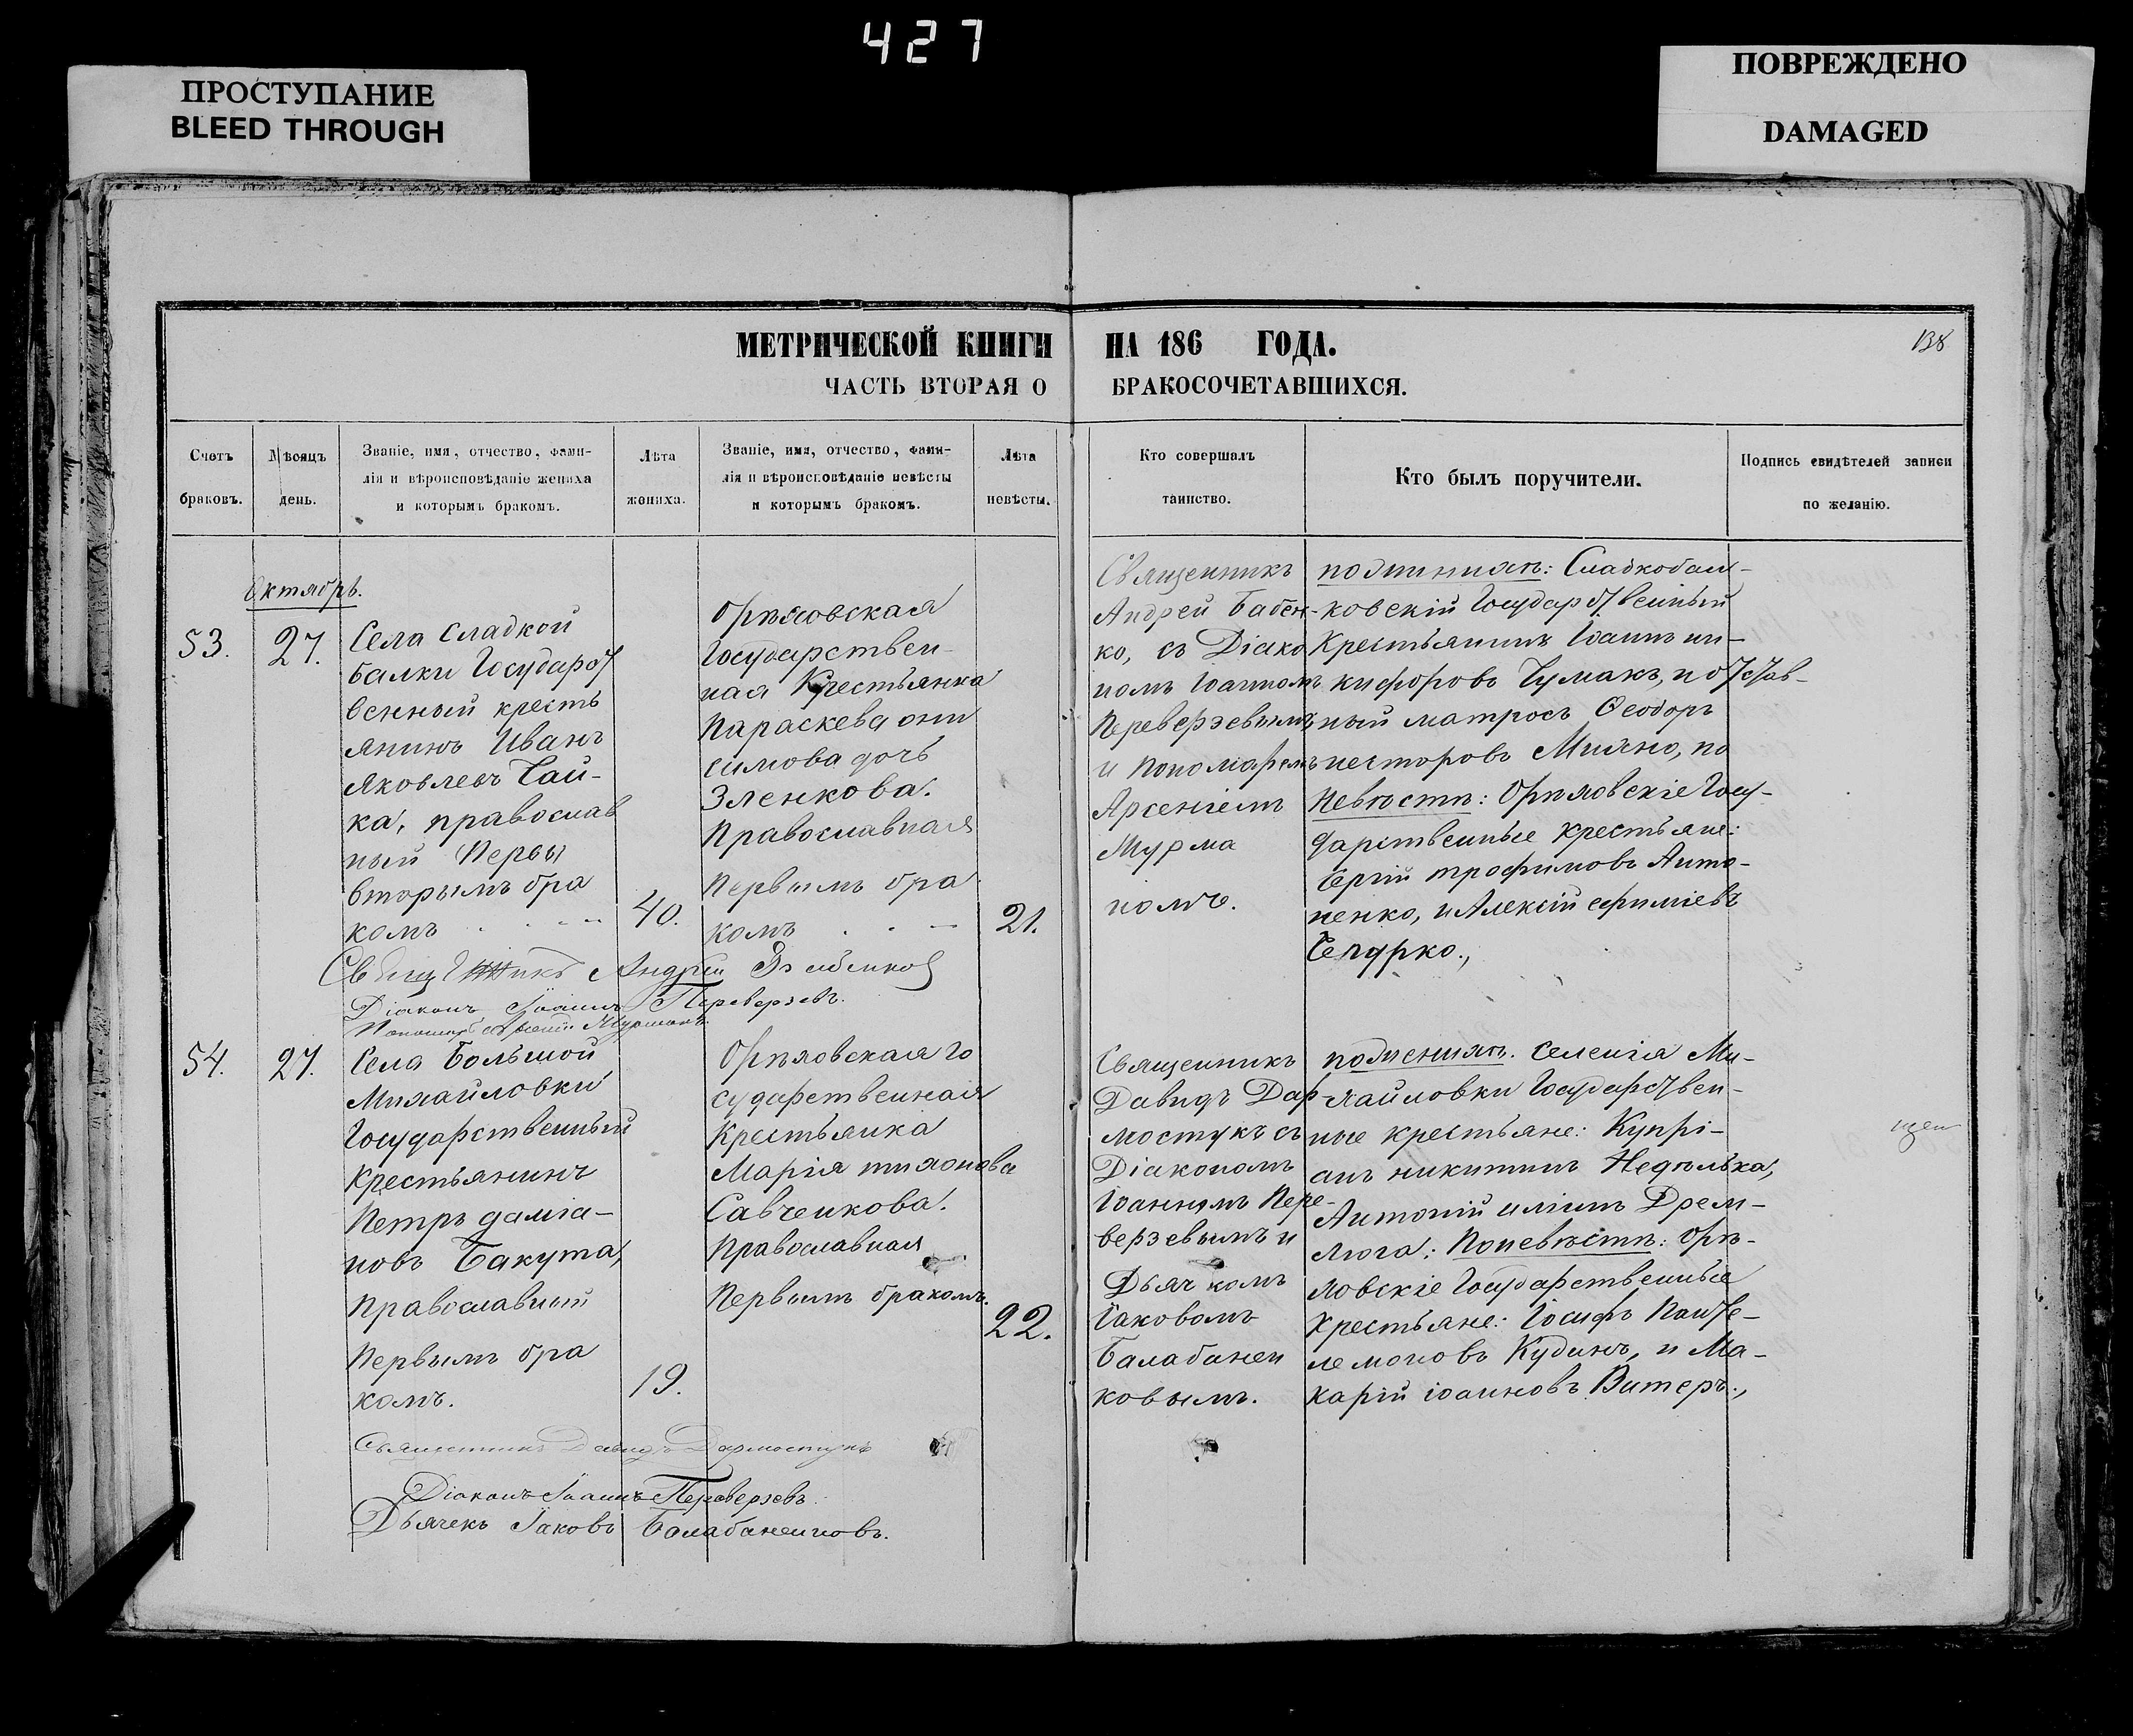 427
ПРОСТУПАНИЕ
BLEED THROUGH
ПОВРЕЖДЕНО
DAMAGED
МЕТРИЧЕСКОЙ КНИГИ НА 186 ГОДА.
138
ЧАСТЬ ВТОРАЯ О БРАКОСОЧЕТАВШИХСЯ.
Счетъ
браковъ.
Мѣсяцъ
день.
Званіе, имя, отчество, фами-
лія и вѣроисповѣданіе жениха
и которымъ бракомъ.
Лѣта
жениха.
Званіе, имя, отчество, фами-
лія и вѣроисповѣданіе невѣсты
и которымъ бракомъ.
Лѣта
невѣсты.
Кто совершалъ
таинство.
Кто былъ поручители.
Подпись свидѣтелей записи
по желанію.
Октябрь.
53.
27.
Села Сладкой
балки Государст
венный кресть
янинъ Иванъ
Яковлевъ Чай-
ка, православ
ный Первы
вторымъ бра
комъ
40.
Орѣховская
Государствен-
ная Крестьянка
Параскева они
симова дочь
Зленкова.
Православная
Первымъ бра
комъ
21.
Священникъ
Андрей Бабен-
ко, съ Діако
номъ Іоанномъ
Переверзевымъ
и Пономаремъ
Арсеніемъ
Мурма
номъ.
по женихѣ: Сладкобал-
ковскій Государственный
Крестьянинъ Іоаннъ ни-
кифоровъ Чумакъ, и отстав-
ный матросъ Ѳеодоръ
несторовъ Михно, по
Невѣстѣ: Орѣховскіе Госу-
дарственные крестьяне:
Сергій трофимовъ Анто-
ненко, и Алексій ефиміевъ
Чечурко.,
Священникъ Андрей
Діаконъ Іоаннъ Переверзевъ.
Пономарь Арсеній Мурманъ.
54.
27.
Села Большой
Михайловки
Государственный
Крестьянинъ
Петръ даміа-
новъ Бакута,
Православный
Первымъ бра
комъ.
19.
Орѣховская Го
сударственная
Крестьянка
Марія тихонова
Савченкова.
Православная
Первымъ бракомъ.
22.
Священникъ
Давидъ Дар-
мостукъ съ
Діакономъ
Іоанномъ Пере-
верзевымъ и
Дьячкомъ
Іаковомъ
Балабанен
ковымъ.
по женихѣ. Селенія Ми-
хайловки Государствен-
ные крестьяне: Купрі-
анъ никитинъ Недѣлька,
Антоній иліинъ Дрем-
люга; По невѣстѣ: Орѣ-
ховскіе Государственные
Крестьяне: Іосифъ Панте-
лемоновъ Кудинъ, и Ма-
карій іоанновъ Витеръ.,
Священникъ Давидъ Дармостукъ
Діаконъ Іоаннъ Переверзевъ.
Дьячекъ Іаковъ Балабаненковъ.